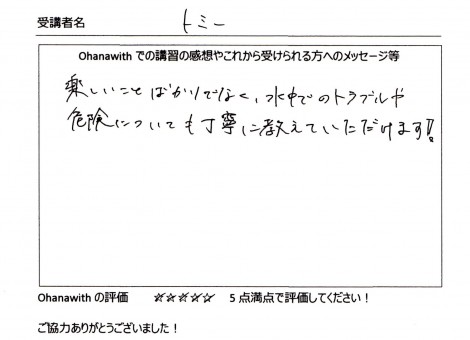 受講者名 トミー
Ohanawith での講習の感想やこれから受けられる方へのメッセージ等
楽しいことばかりでなく、水中でのトラブルや
危険についても丁寧に教えていただけます!!
Ohanawith の評価 ☆☆☆☆☆ 5 点満点で評価してください！
ご協力ありがとうございました！